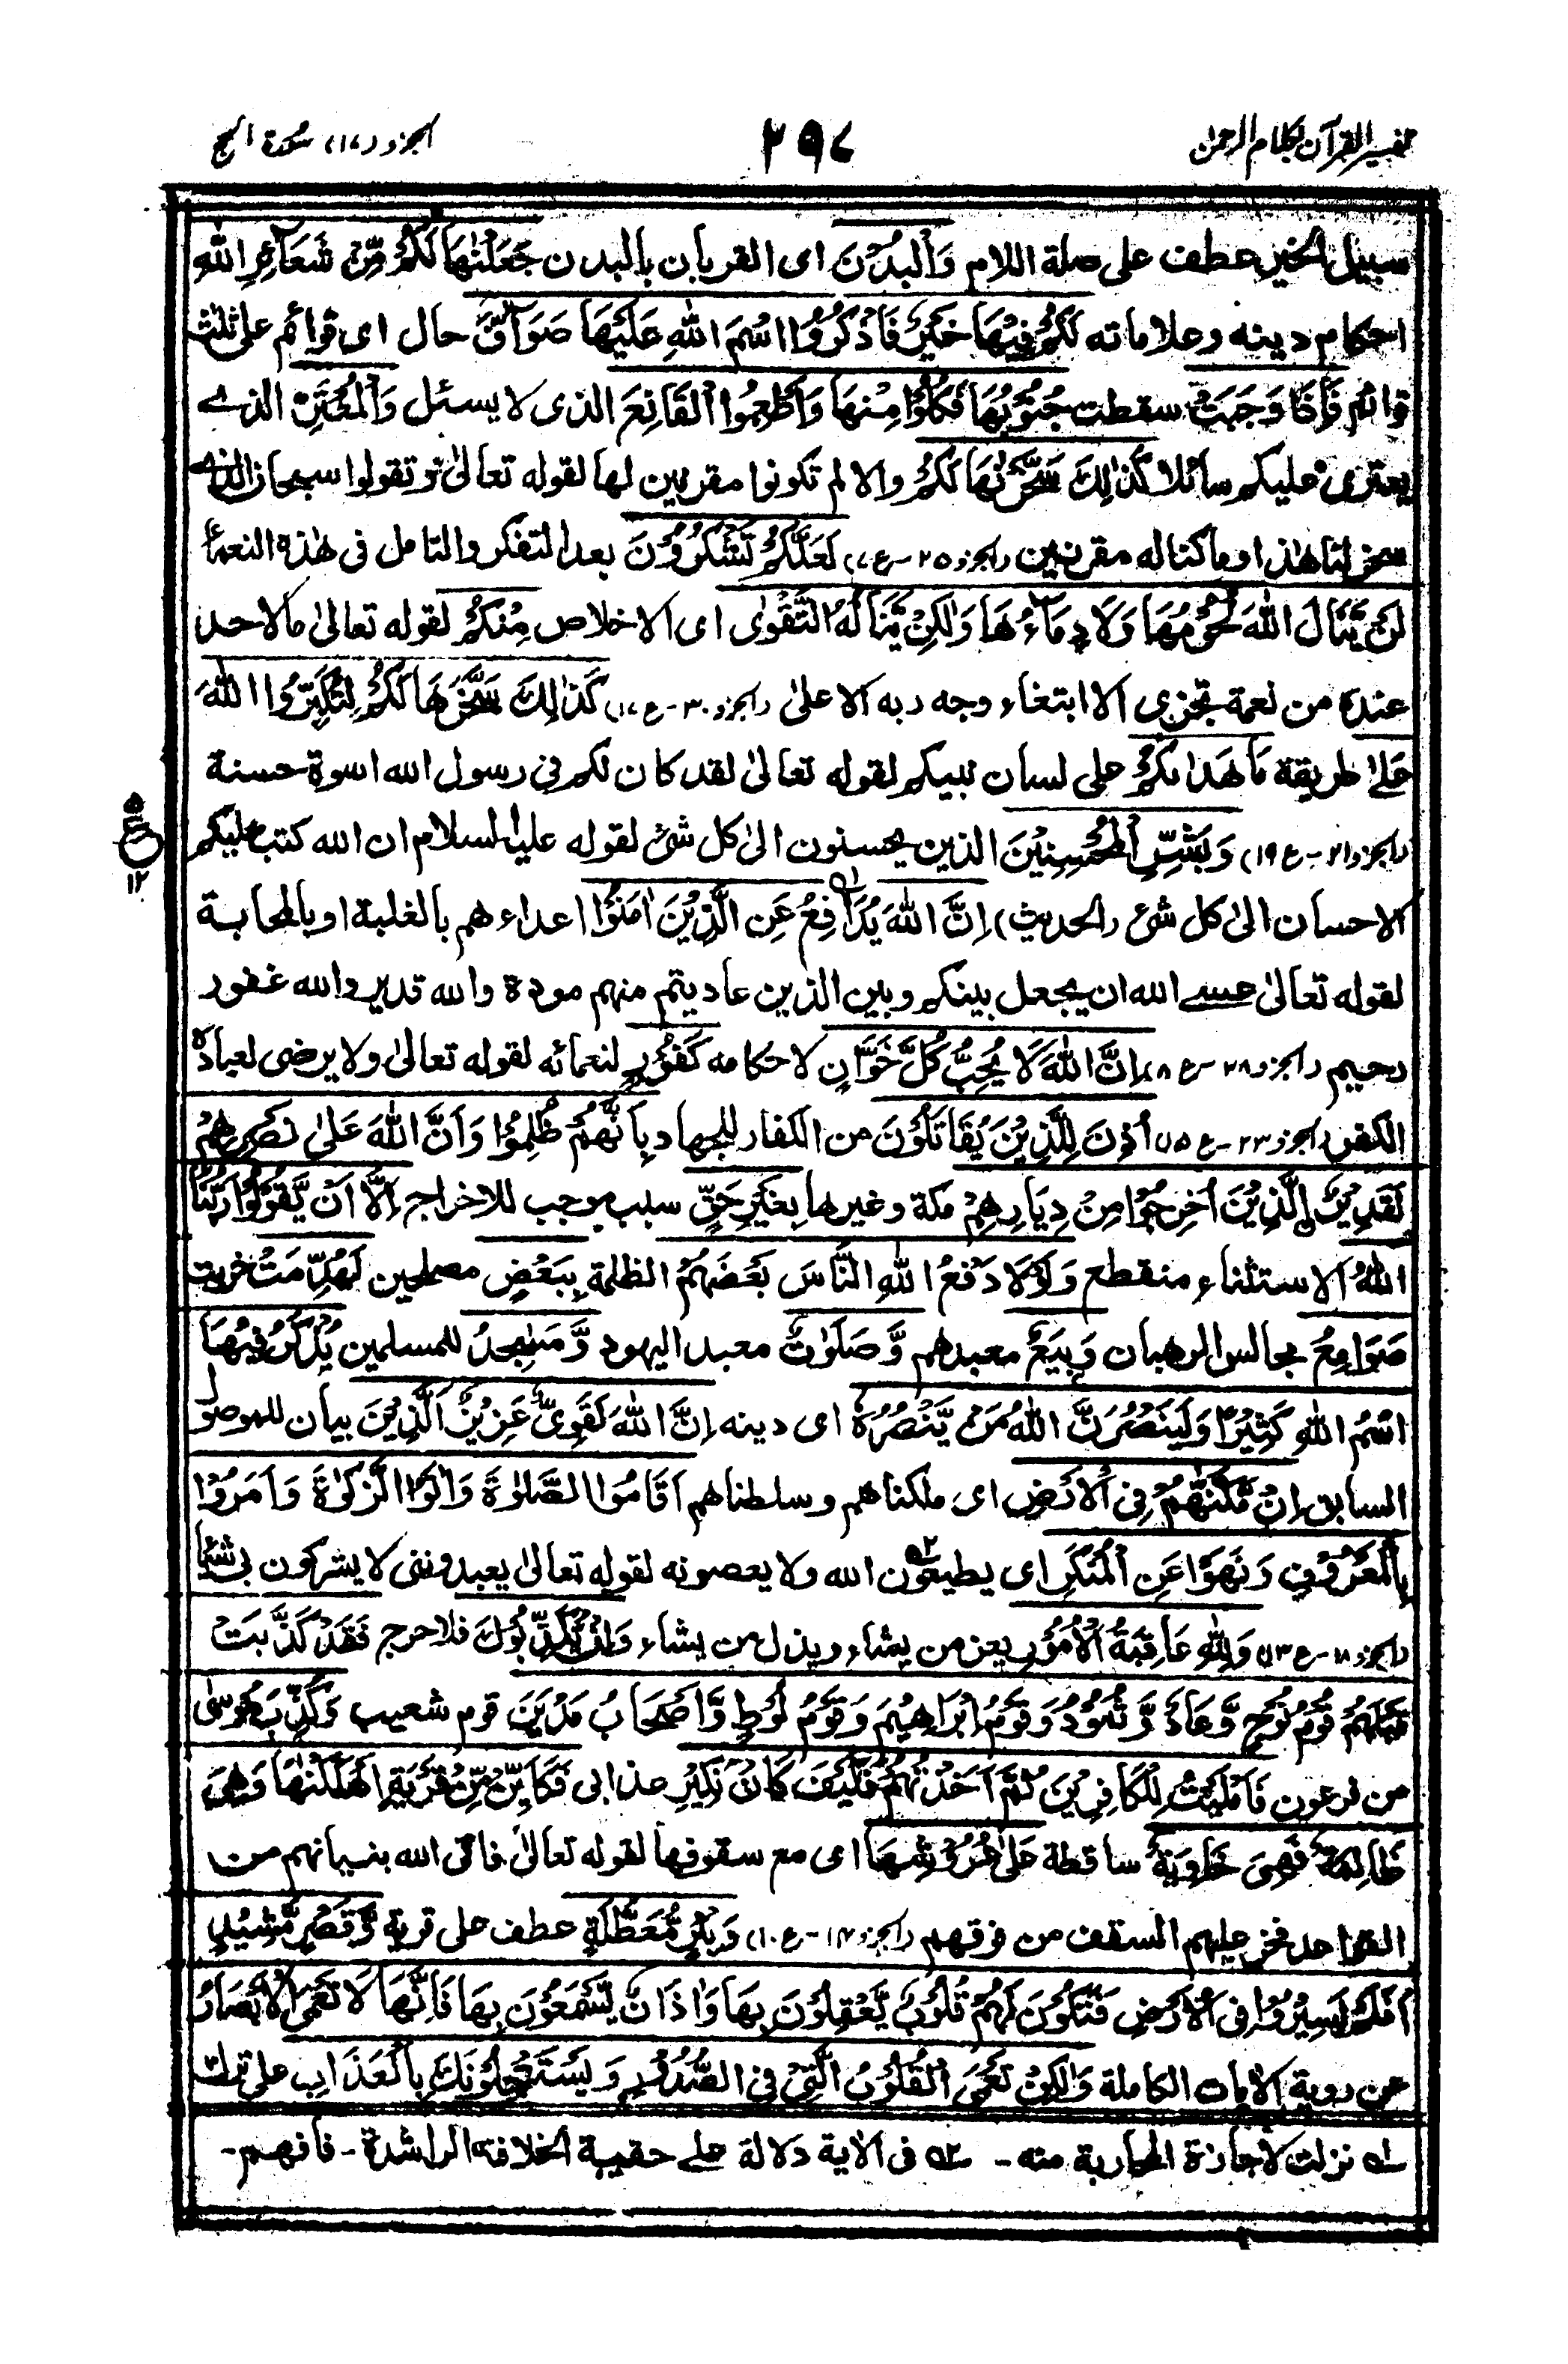 تفسير القرآن بكلام الرحمن
٢٩٧
الجزو (١٧) سورة الحج
سبيل الخير عطف على صلة اللام وَالْبُدْنَ اى القربان بالبدن جَعَلْنٰهَا لَكُمْ مِّنْ شَعَآئِرِ اللّٰهِ
احكام دينه وعلاماته لَكُمْ فِيْهَا خَيْرٌ فَاذْكُرُوا اسْمَ اللّٰهِ عَلَيْهَا صَوَآفَّ حال اى قوائم على ثلث
قوائم فَاِذَا وَجَبَتْ سقطت جُنُوْبُهَا فَكُلُوْا مِنْهَا وَاَطْعِمُوا الْقَانِعَ الذى لا يسئل وَالْمُعْتَرَّ الذے
يعترى عليكم سائلا كَذٰلِكَ سَخَّرْنٰهَا لَكُمْ والا لم تكونوا مقربين لها لقوله تعالىٰ وتقولوا سبحان الذے
سخر لنا هٰذا وما كنا له مقرنين (الجزو ٢٥ - ع ٧) لَعَلَّكُمْ تَشْكُرُوْنَ بعد التفكر والتامل فى هٰذه النعماء
لَنْ يَّنَالَ اللّٰهَ لُحُوْمُهَا وَلَا دِمَآؤُهَا وَلٰكِنْ يَّنَالُهُ التَّقْوٰى اى الاخلاص مِنْكُمْ لقوله تعالىٰ ما لاحد
عنده من نعمة تجزى الا ابتغاء وجه ربه الاعلىٰ (الجزو ٣٠ - ع ١٧) كَذٰلِكَ سَخَّرَهَا لَكُمْ لِتُكَبِّرُوا اللّٰهَ
عَلىٰ طريقة مَا هَدٰىكُمْ على لسان نبيكم لقوله تعالىٰ لقد كان لكم فى رسول الله اسوة حسنة
(الجزو ٢١ - ع ١٩) وَبَشِّرِ الْمُحْسِنِيْنَ الذين يحسنون الىٰ كل شئ لقوله عليه السلام ان الله كتب عليكم
الاحسان الىٰ كل شئ (الحديث) اِنَّ اللّٰهَ يُدَافِعُ عَنِ الَّذِيْنَ اٰمَنُوْا اعداءهم بالغلبة او بالمحابة
لقوله تعالىٰ عسے الله ان يجعل بينكم وبين الذين عاديتم منهم مودة والله قدير والله غفور
رحيم (الجزو ٢٨ - ع ٨) اِنَّ اللّٰهَ لَا يُحِبُّ كُلَّ خَوَّانٍ لاحكامه كَفُوْرٍ لنعمائه لقوله تعالىٰ ولا يرضى لعباده
الكفر (الجزو ٢٣ - ع ١٥) اُذِنَ لِلَّذِيْنَ يُقَاتَلُوْنَ من الكفار للجهاد بِاَنَّهُمْ ظُلِمُوْا وَاَنَّ اللّٰهَ عَلٰى نَصْرِهِمْ
لَقَدِيْرٌ الَّذِيْنَ اُخْرِجُوْا مِنْ دِيَارِهِمْ مكة وغيرها بِغَيْرِ حَقٍّ سبب موجب للاخراج اِلَّا اَنْ يَّقُوْلُوْا رَبُّنَا
اللّٰهُ الاستثناء منقطع وَلَوْلَا دَفْعُ اللّٰهِ النَّاسَ بَعْضَهُمْ الظلمة بِبَعْضٍ مصلحين لَهُدِّمَتْ خربت
صَوَامِعُ مجالس الرهبان وَبِيَعٌ معبدهم وَّصَلَوٰتٌ معبد اليهود وَّمَسٰجِدُ للمسلمين يُذْكَرُ فِيْهَا
اسْمُ اللّٰهِ كَثِيْرًا وَلَيَنْصُرَنَّ اللّٰهُ مَنْ يَّنْصُرُهٗ اى دينه اِنَّ اللّٰهَ لَقَوِىٌّ عَزِيْزٌ اَلَّذِيْنَ بيان للموصول
السابق اِنْ مَّكَّنّٰهُمْ فِى الْاَرْضِ اى ملكناهم وسلطناهم اَقَامُوا الصَّلٰوةَ وَاٰتَوُا الزَّكٰوةَ وَاَمَرُوْا
بِالْمَعْرُوْفِ وَنَهَوْا عَنِ الْمُنْكَرِ اى يطيعون الله ولا يعصونه لقوله تعالىٰ يعبدوننى لا يشركون بى شيئا
(الجزو ١٨ - ع ١٣) وَلِلّٰهِ عَاقِبَةُ الْاُمُوْرِ يعز من يشاء ويذل من يشاء وَاِنْ يُّكَذِّبُوْكَ فلا حرج فَقَدْ كَذَّبَتْ
قَبْلَهُمْ قَوْمُ نُوْحٍ وَّعَادٌ وَّثَمُوْدُ وَقَوْمُ اِبْرَاهِيْمَ وَقَوْمُ لُوْطٍ وَّاَصْحَابُ مَدْيَنَ قوم شعيب وَكُذِّبَ مُوْسٰى
من فرعون فَاَمْلَيْتُ لِلْكَافِرِيْنَ ثُمَّ اَخَذْتُهُمْ فَكَيْفَ كَانَ نَكِيْرِ عذابى فَكَاَيِّنْ مِّنْ قَرْيَةٍ اَهْلَكْنٰهَا وَهِىَ
ظَالِمَةٌ فَهِىَ خَاوِيَةٌ ساقطة عَلٰى عُرُوْشِهَا اى مع سقوفها لقوله تعالىٰ فاتى الله بنيانهم من
القواعد فخر عليهم السقف من فوقهم (الجزو ١٤ - ع ١٠) وَبِئْرٍ مُّعَطَّلَةٍ عطف على قرية وَّقَصْرٍ مَّشِيْدٍ
اَفَلَمْ يَسِيْرُوْا فِى الْاَرْضِ فَتَكُوْنَ لَهُمْ قُلُوْبٌ يَّعْقِلُوْنَ بِهَا وَاٰذَانٌ يَّسْمَعُوْنَ بِهَا فَاِنَّهَا لَا تَعْمَى الْاَبْصَارُ
عن روية الاٰيات الكاملة وَلٰكِنْ تَعْمَى الْقُلُوْبُ الَّتِىْ فِى الصُّدُوْرِ وَيَسْتَعْجِلُوْنَكَ بِالْعَذَابِ على تركك
ع
٥
١٢
لـه نزلت لاجازة المحاربة منه - ٢ـه فى الاٰية دلالة على حقيية الخلافة الراشدة - فافهم -